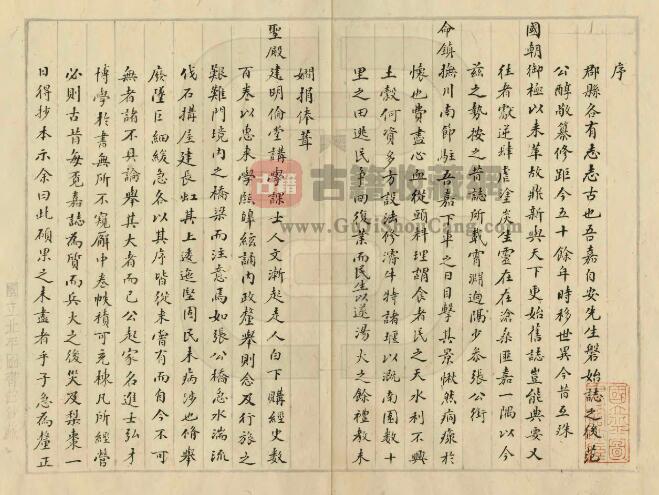 序
郡縣各有志志古也吾嘉自安先生磐始誌之後范
公醇敬纂修距今五十餘年時移世異今昔互殊
國朝御極以來革故鼎新與天下更始舊誌豈能典要又
往者獻逆肆虐塗炭生靈在在滄桑匪嘉一隅以今
茲之勢按之昔誌所載霄淵迥隔少參張公銜
命鎮撫川南節駐吾嘉下車之日目擊其景愀然痌瘝於
懷也費盡心血從頭料理謂食者民之天水利不興
土穀何資多方設法修濬牛特諸堰以溉南圍數十
里之田逃民爭回復業而民生以遂湯火之餘禮教未
嫻捐俸葺
聖殿建明倫堂講學課士人文漸起走人白下購經史數
百卷以惠來學庶皞絃誦內政釐舉則念及行旅之
艱難門境內之橋梁而注意焉如張公橋急水湍流
伐石搆屋建長虹其上逶迤堅固民未病涉也脩舉
廢墜巨細緩急各以其序皆從來嘗有而自今不可
無者諸不具論舉其大者而已公起家名進士弘才
博學於書無所不窺廨中卷帙積可充棟凡所經營
必則古昔每覓嘉誌為質而兵火之後災及梨棗一
日得抄本示余曰此碩果之未盡者乎子急為釐正
古籍
古籍收藏網
www.GuJiShouCang.com